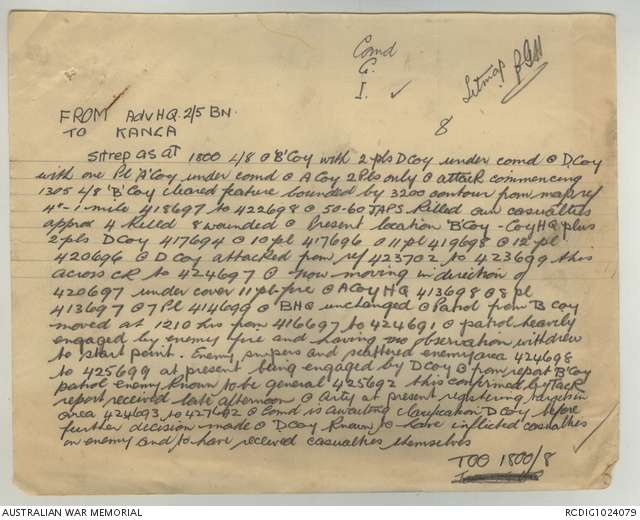 Comd
G.
I. ✓
Sitmap
8
FROM Adv HQ. 2/5 BN.
TO KANGA
Sitrep as at 1800 4/8 @ 'B' Coy with 2 pls D Coy under comd @ D. Coy
with one Pl 'A' Coy under comd @ A Coy 2 Pls only @ attack commencing
1305 4/8 'B' Coy cleared feature bounded by 3200 contour from map ref
4"-1 mile 418697 to 422698 @ 50-60 JAPS killed own casualties
approx 4 killed 8 wounded @ Present location 'B' Coy - Coy HQ plus
2 pls D Coy 417694 @ 10 pl 417696 @ 11 pl 419698 @ 12 pl
420696 @ D Coy attacked from ref 423702 to 423699 thus
across CR to 424697 @ now moving in direction of
420697 under cover 11 pl fire @ A Coy HQ 413698 @ 8 pl
413697 @ 7 Pl 414699 @ BHQ unchanged @ Patrol from B Coy
moved at 1210 hrs from 416697 to 424691 @ patrol heavily
engaged by enemy fire and having no observation withdrew
to start point. Enemy snipers and scattered enemy area 424698
to 425699 at present being engaged by D Coy @ from report 'B' Coy
patrol enemy known to be general 425692 this confirmed by Tac R
report received late afternoon @ Arty at present registering targets in
area 424693 to 427692 @ Comd is awaiting clarification D Coy before
further decision made @ D Coy known to have inflicted casualties
on enemy and to have received casualties themselves
TOO 1800/8
AUSTRALIAN WAR MEMORIAL
RCDIG1024079